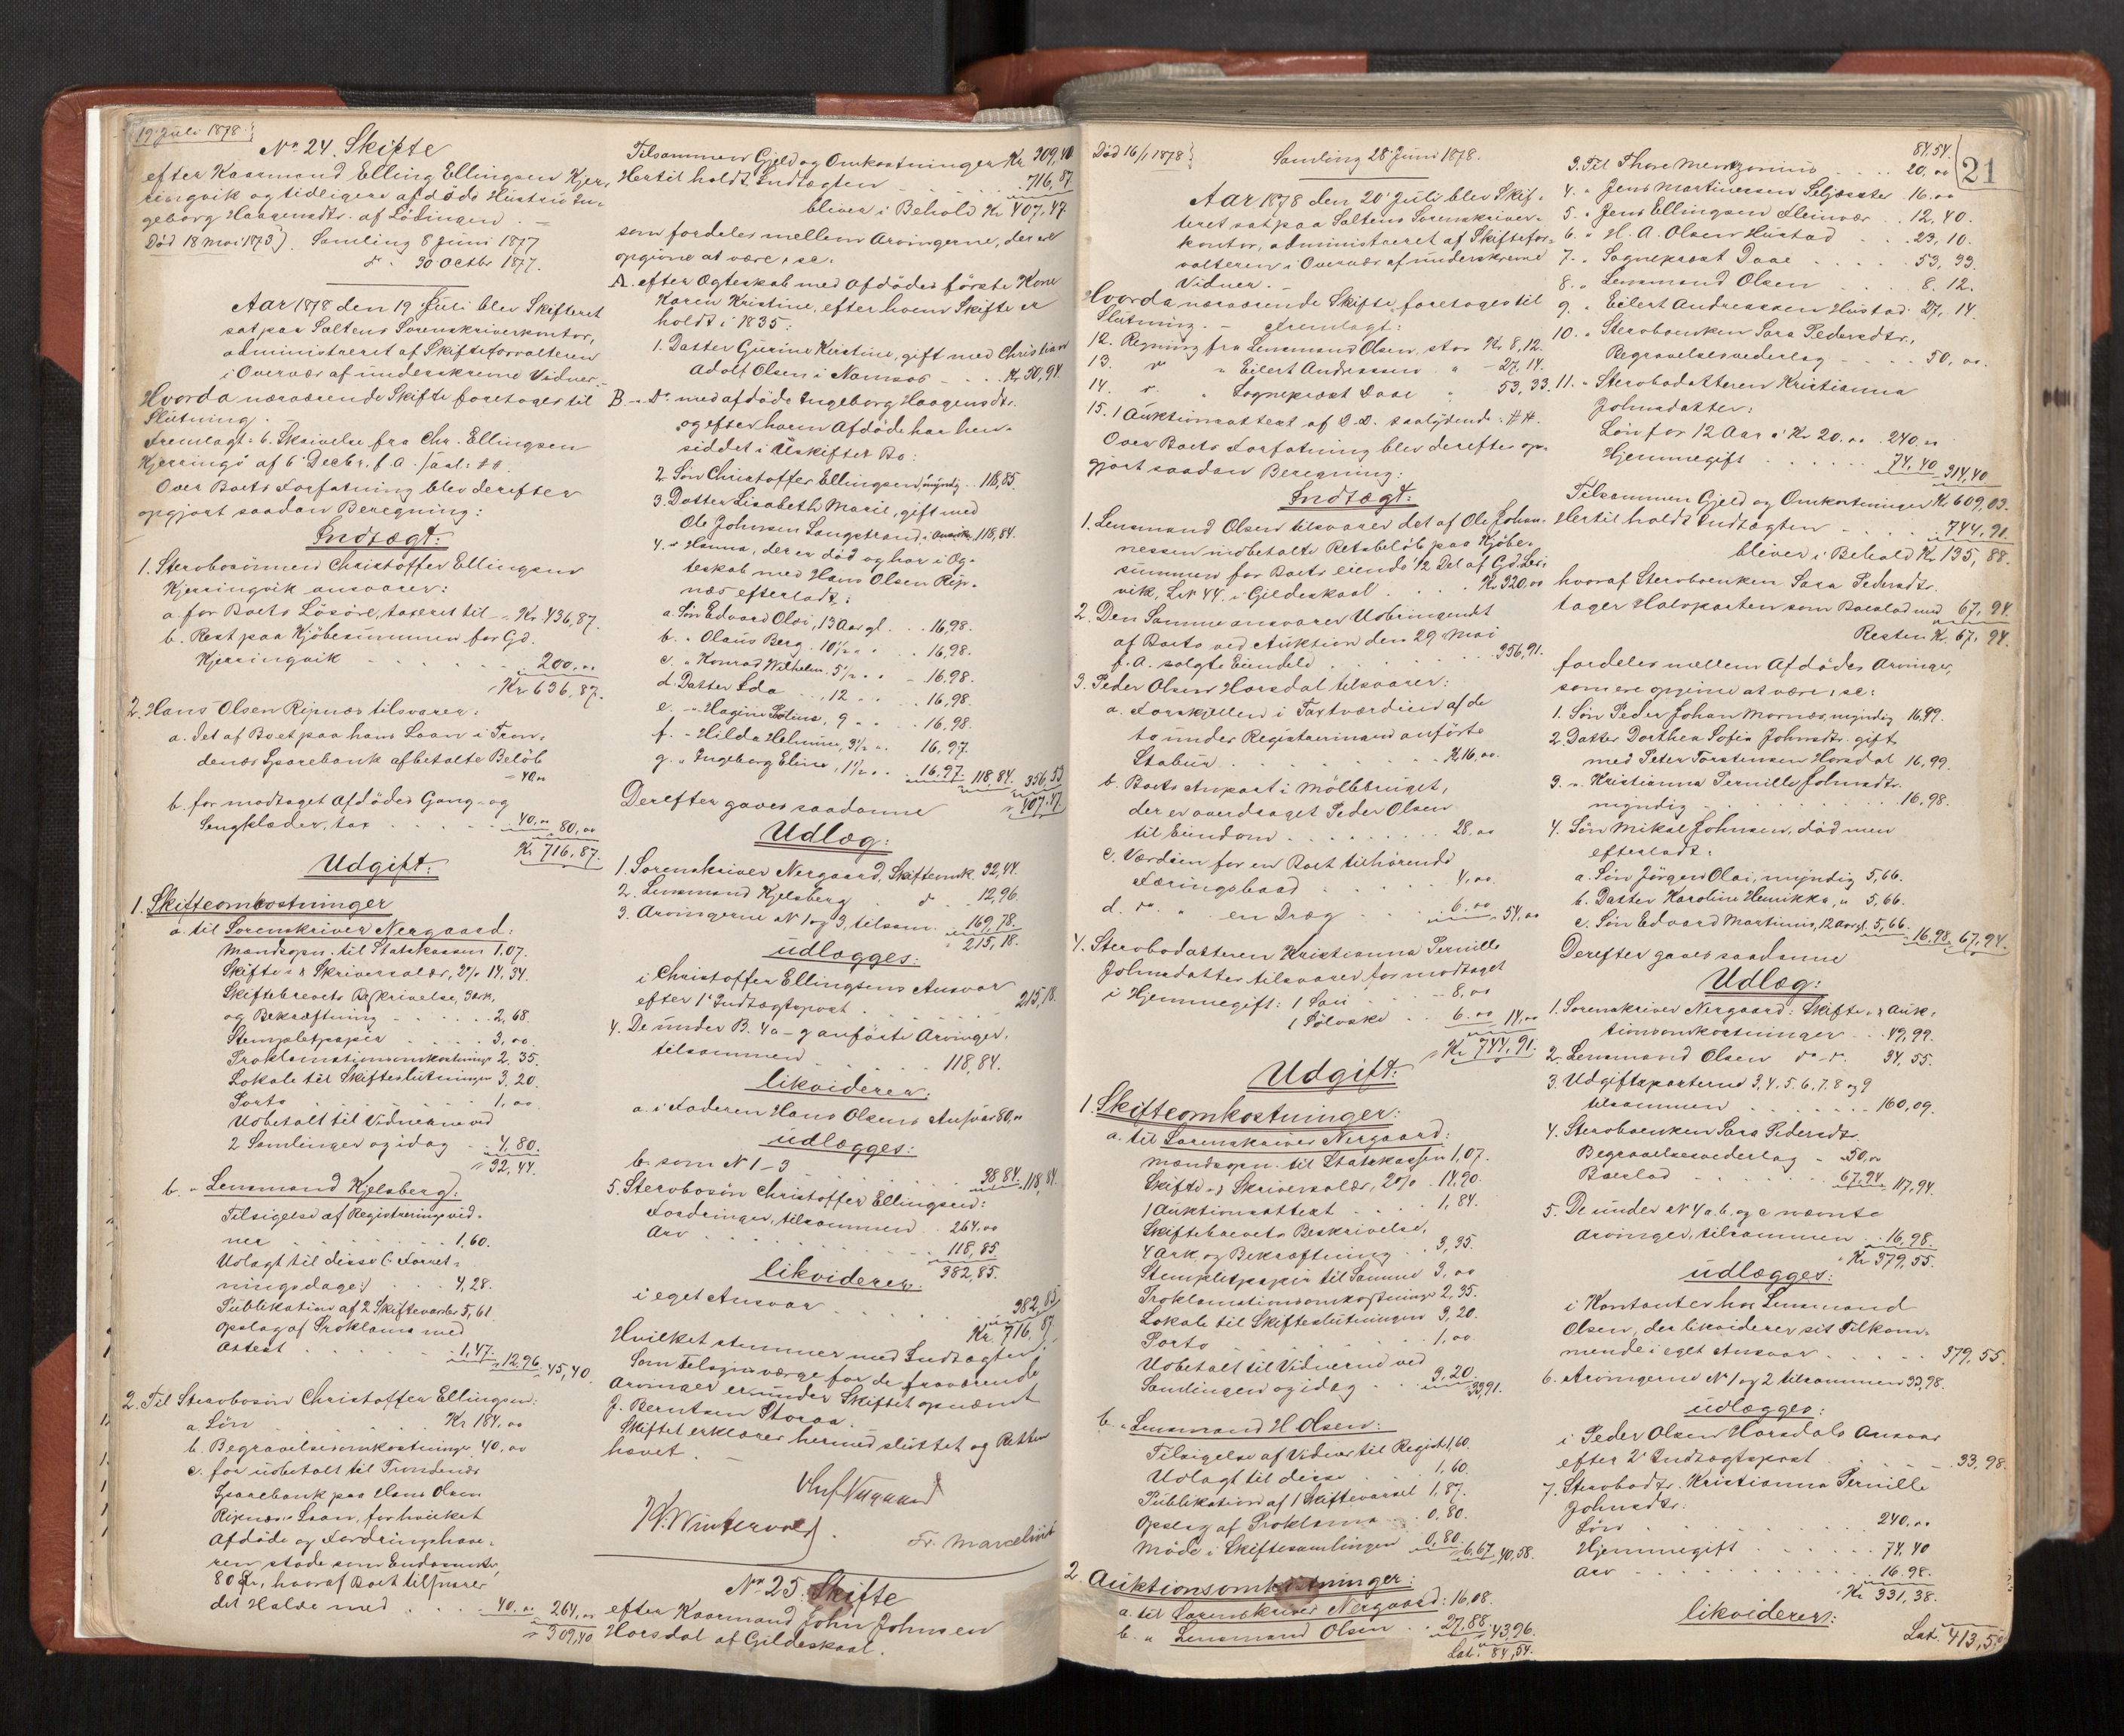 19 Juli 1878.
No 24. Skifte
efter Kaarmand Elling Ellingsen Kjer-
ringvik og tidligere afdöde Hustru In-
geborg Haagensdtr. af Lödingen. -
Död 18 Mai 1873. Samling 8 Juni 1877
do. 30 Octbr. 1877.
Aar 1878 den 19 Juli blev Skifteret
sat paa Saltens Sorenskriverkontor,
administreret af Skifteforvalteren
i Overvær af underskrevne Vidner. -
Hvorda nærværende Skifte foretoges til
Slutning.
Fremlagt: 6. Skrivelse fra Chr. Ellingsen
Kjerringö af 6 Decbr. f. A. saal: ##
Over Boets Forfatning blev derefter
opgjort saadan Beregning:
Indtægt:
1. Stervbosönnen Christoffer Ellingsen
Kjerringvik ansvarer:
a. for Boets Lösöre, taxeret til - Kr 436,87.
b. Rest paa Kjöbesummen for Gd.
Kjerringvik - - - - 200,00
Kr 636,87.
2. Hans Olsen Ripnæs tilsvarer:
a. det af Boet paa hans Laan i Tron-
denæs Sparebank afbetalte Belöb
- 40,00
b. for modtaget Afdödes Gang- og
Sengklæder, tax . . . . 40,00 80,00
Kr 716,87.
Udgift:
1. Skifteomkostninger
a. til Sorenskriver Nergaard:
Mandspn. til Statskassen 1,07.
Skifte- & Skriversalær, 2% 14,34.
Skiftebrevets Beskrivelse, 3 ark,
og Bekræftning . . . . 2,68.
Stempletpapir . . . . 3,00.
Proklamationsomkostninger 2,35.
Lokale til Skifteslutningen 3,20.
Porto . . . . 1,00.
Udbetalt til Vidnerne ved
2 Samlinger og idag . . 4,80.
32,44.
b. " Lensmand Kjelsberg:
Tilsigelse af Registreringsvid-
ner . . . . 1,60.
Udlagt til disse (: Forret-
ningsdage:) . . . . 4,28.
Publikation af 2 Skiftevarsler 5,61
Opslag af Proklama med
Attest . . . . 1,47. 12,96. 45,40.
2. Til Stervbosön Christoffer Ellingsen:
a. Lön . . . . Kr 184,00
b. Begravelsesomkostninger 40,00
c. for udbetalt til Trondenæs
Sparebank paa Hans Olsen
Ripnæs's Laan, for hvilket
Afdöde og Fordringshave-
ren stode som Endossenter,
80 Kr, hvoraf Boet tilsvarer
det Halve med . . . . 40,00 264,00
309,40
Tilsammen Gjeld og Omkostninger Kr 309,40
Hertil holdt Indtægten . . . . 716,87
bliver i Behold Kr 407,47.
som fordeles mellem Arvingerne, der ere
opgivne at være, se:
A. efter Ægteskab med Afdödes förste Kone
Karen Kristine, efter hvem Skifte er
holdt i 1835:
1. Datter Gurine Kirstine, gift med Christian
Adolf Olsen i Namsos . . . Kr 50,94.
B. - Do. med afdöde Ingeborg Haagensdtr.
og efter hvem Afdöde har hen-
siddet i Uskiftet Bo:
2. Sön Christoffer Ellingsen, myndig . . 118,85.
3. Datter Lisabeth Marie, gift med
Ole Johnsen Langstrand, i 118,84.
4. " Hanna, der er död og har i Æg-
teskab med Hans Olsen Rip-
næs efterladt:
a. Sön Edvard Olai, 13 Aar gl. . . 16,98.
b. " Olaus Berg . 10½ " " . . 16,98.
c. " Konrad Wilhelm 5½ " " - 16,98.
d. Datter Ida . . . 12 " " . 16,98.
e. " Hagine Petine, 9 " " . 16,98.
f. " Hilda Helmine, 3½ " " 16,97.
g. " Ingeborg Eline, 1½ " " 16,97. 118,84. 356,53
407,47.
Derefter gaves saadanne
Udlæg:
1. Sorenskriver Nergaard, Skifteomk. 32,44.
2. Lensmand Kjelsberg do. 12,96.
3. Arvingerne No 1 og 3, tilsam. 169,78.
215,18.
udlægges:
i Christoffer Ellingsens Ansvar
efter 1' Indtægtspost . . . . 215,18.
4. De under B. 4 a - g anförte Arvinger,
tilsammen . . . . 118,84.
likviderer:
a. i Faderen Hans Olsens Ansvar 80,00
udlægges:
b. som No 1 - 3 . . . . 38,84. 118,84.
5. Stervbosön Christoffer Ellingsen:
Fordringer, tilsammen . 264,00
Arv . . . . 118,85.
382,85.
likviderer:
i eget Ansvar . . . . 382,85.
Kr. 716,87.
Hvilket stemmer med Indtægten.
Som Tilsynsværge for de fraværende
Arvinger er under Skiftet opnævnt
J. Berntsen Storaa.
Skiftet erklæres hermed sluttet og Retten
hævet. -
Nergaard
H. Wintervold. Fr. Marcelius
No 25. Skifte
efter Kaarmand John Johnsen
Horsdal af Gildeskaal.
Död 16/1 1878 Samling 28 Juni 1878.
21
Aar 1878 den 20 Juli blev Skif-
teret sat paa Saltens Sorenskriver-
kontor, administreret af Skiftefor-
valteren i Overvær af underskrevne
Vidner. -
Hvorda nærværende Skifte foretoges til
Slutning. - Fremlagt:
12. Regning fra Lensmand Olsen, stor Kr 8,12.
13. do " Eilert Andreassen " - 27,14.
14. do " Sogneprest Daae " 53,33.
15. 1 Auktionsattest af D. D. saalydende: ##.
Over Boets Forfatning blev derefter op-
gjort saadan Beregning:
Indtægt:
1. Lensmand Olsen tilsvarer det af Ole Johan-
nessen indbetalte Restbelöb paa Kjöbe-
summen for Boets eiende 1/2 Del af Gd. Lei-
vik, L.No 44. i Gildeskaal . . . . Kr 320,00
2. Den Samme ansvarer Udbringendet
af Boets ved Auktion den 29 Mai
f. A. solgte Eiendele . . . . 356,91.
3. Peder Olsen Horsdal tilsvarer:
a. Forskjellen i Taxtværdien af de
to under Registreringen anförte
Stabur . . . . Kr 16,00.
b. Boets Anpart i Möllebruget,
der er overdraget Peder Olsen
til Eiendom . . . . 28,00
c. Værdien for en Boet tilhörende
Færingsbaad . . . . 4,00.
d. do. " en Dræg . . . 6,00 54,00
4. Stervbodatteren Kristianna Pernille
Johnsdatter tilsvarer for modtaget
i Hjemmegift: 1 Sau . . - 8,00
1 Sölvske . . 6,00 14,00
Kr 744,91.
Udgift:
1. Skifteomkostninger:
a. til Sorenskriver Nergaard:
Mandspn. til Statskassen 1,07.
Skifte- & Skriversalær, 2% . 14,90.
1 Auktionsattest . . . 1,84.
Skiftebrevets Beskrivelse,
4 Ark og Bekræftning . . 3,35.
Stempletpapir til Samme 3,00
Proklamationsomkostninger 2,35.
Lokale til Skifteslutningen 3,20.
Porto . . . . 1,00.
Udbetalt til Vidnerne ved
Samlingen og idag . . 3,20.
33,91.
b. " Lensmand H Olsen:
Tilsigelse af Vidner til Registr. 1,60.
Udlagt til disse . . 1,60.
Publikation af 1 Skiftevarsel 1,87.
Opslag af Proklama . . 0,80.
Möde i Skiftesamlingen 0,80. 6,67. 40,58.
2. Auktionsomkostninger:
a. til Sorenskriver Nergaard: 16,08.
b. " Lensmand Olsen . . 27,88. 43,96.
Lat. 84,54.
84,54.
3. Til Thore Mentzonius . . . . 20,00
4. " Jens Martinussen Seljeseter 16,00
5. " Jens Ellingsen Fleinvær . . 12,40.
6. " H. A. Olsen Hustad . . 23,10.
7. " Sogneprest Daae . . . . 53,33.
8. " Lensmand Olsen . . . . 8,12.
9. " Eilert Andreassen Hustad 27,14.
10. " Stervboenken Sara Pedersdtr.,
Begravelsesvederlag . . . . 50,00.
11. " Stervbodatteren Kristianna
Johnsdatter:
Lön for 12 Aar à Kr 20,00 . 240,00
Hjemmegift . . . . 74,40 314,40
Tilsammen Gjeld og Omkostninger Kr 609,03.
Hertil holdt Indtægten . . . . 744,91.
bliver i Behold Kr 135,88.
hvoraf Stervboenken Sara Pedersdtr.
tager Halvparten som Boeslod med 67,94.
Resten Kr 67,94.
fordeles mellem Afdödes Arvinger,
som ere opgivne at være, se:
1. Sön Peder Johan Mornæs, myndig 16,99.
2. Datter Dorthea Sofia Johnsdtr. gift
med Peter Torstensen Horsdal 16,99.
3. " Kristianna Pernille Johnsdtr.
myndig . . . . 16,98.
4. Sön Mikal Johnsen, död men
efterladt:
a. Sön Jörgen Olai, myndig 5,66.
b. Datter Karoline Henrikka, " 5,66.
c. Sön Edvard Martinus, 12 Aar gl. 5,66. 16,98. 67,94.
Derefter gaves saadanne
Udlæg:
1. Sorenskriver Nergaard: Skifte- & Auk-
tionsomkostninger . . 49,99.
2. Lensmand Olsen do do. 34,55.
3. Udgiftsposterne 3, 4, 5, 6, 7, 8 og 9
tilsammen . . . . 160,09.
4. Stervboenken Sara Pedersdtr.
Begravelsesvederlag - 50,00
Boeslod . . . . 67,94. 117,94.
5. De under No 4 a. b. og c nævnte
Arvinger, tilsammen . . 16,98.
Kr 379,55.
udlægges:
i Kontanter hos Lensmand
Olsen, der likviderer sit Tilkom-
mende i eget Ansvar . . . . 379,55.
6. Arvingerne No 1 og 2 tilsammen 33,98.
udlægges:
i Peder Olsen Horsdals Ansvar
efter 2' Indtægtspost . . . . 33,98.
7. Stervbodtr. Kristianna Pernille
Johnsdtr:
Lön . . . . 240,00
Hjemmegift . . . . 74,40
Arv . . . . 16,98.
Kr 331,38.
likviderer:
Lat. 413,53